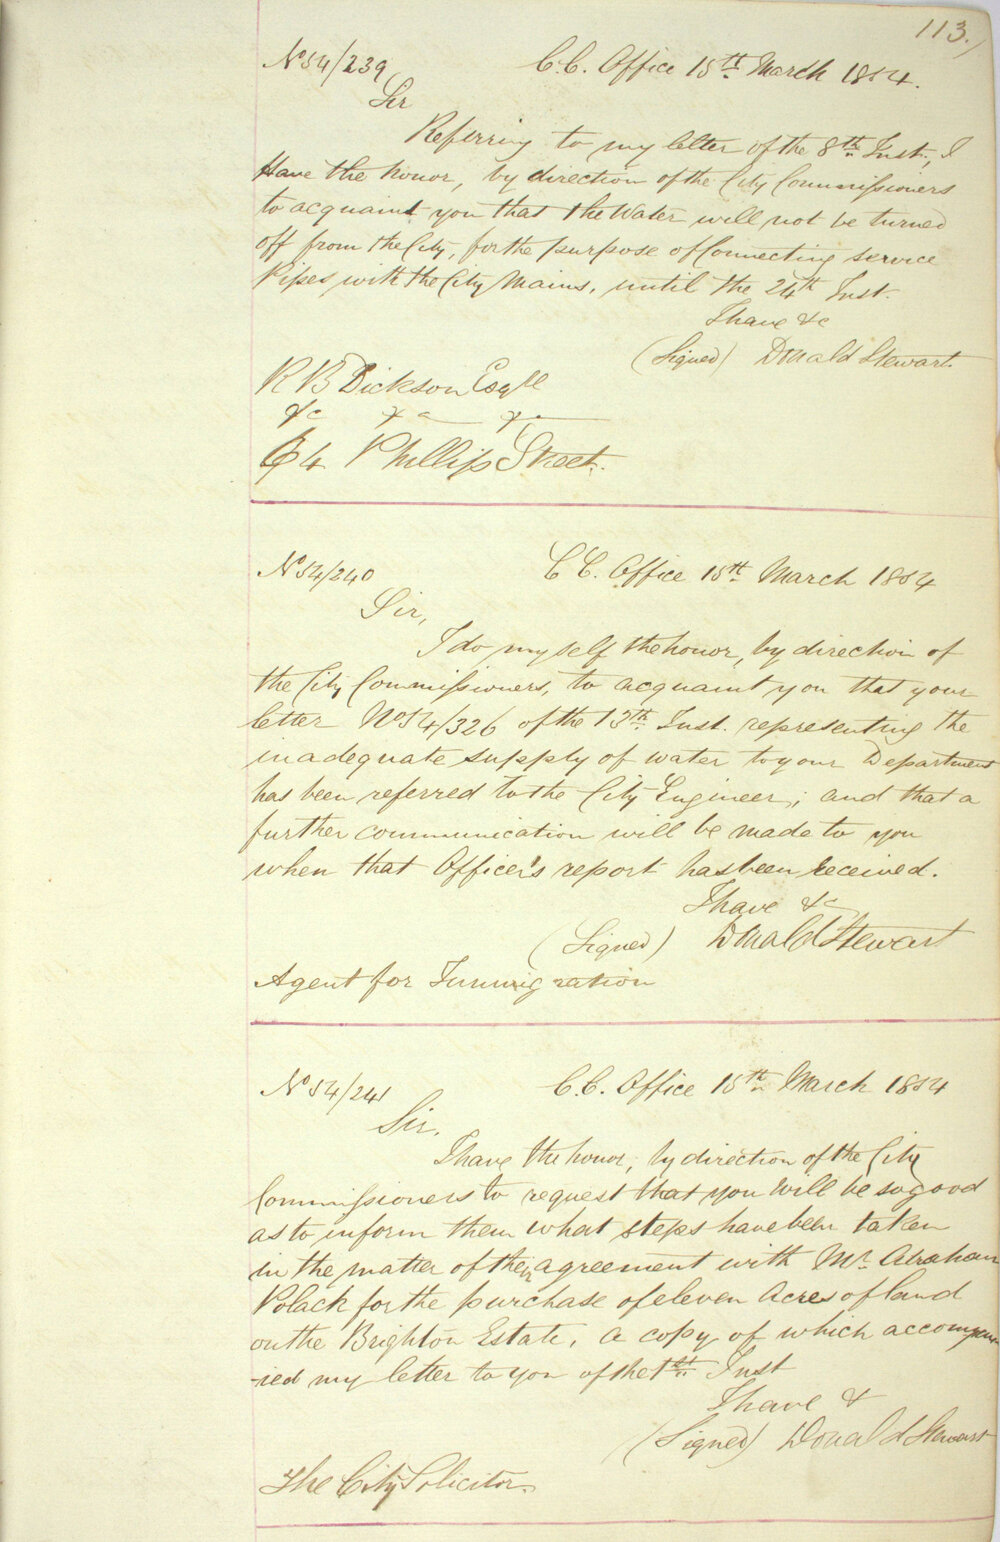 113.
No 54/239 C.C. Office 15th March 1854.
Sir
Referring to my letter of the 8th Inst., I
have the honor, by direction of the City Commissioners
to acquaint you that the Water will not be turned
off from the City, for the purpose of Connecting service
Pipes with the City Mains, until the 24th Inst.
I have &c
(Signed) Donald Stewart
R B Dickson Esqre
&c &c &c
64 Phillip Street.
No 54/240 C.C. Office 15th March 1854
Sir,
I do myself the honor, by direction of
the City Commissioners, to acquaint you that your
letter No 54/326 of the 13th Inst. representing the
inadequate supply of water to your Department
has been referred to the City Engineer; and that a
further communication will be made to you
when that Officer's report has been received.
I have &c
(Signed) Donald Stewart
Agent for Immigration
No 54/241 C.C. Office 15th March 1854
Sir,
I have the honor, by direction of the City
Commissioners to request that you will be so good
as to inform them what steps have been taken
in the matter of their agreement with Mr. Abraham
Polack for the purchase of eleven Acres of land
on the Brighton Estate, a copy of which accompan
-ied my letter to you of the 1st Inst
I have &
(Signed) Donald Stewart
The City Solicitor.